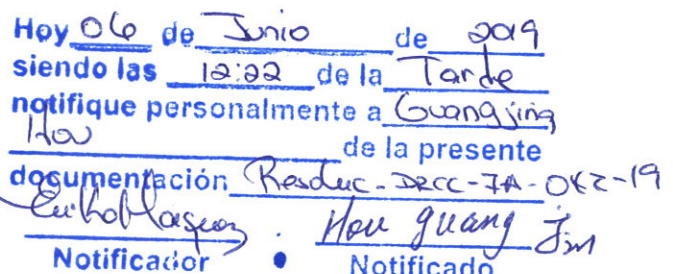 Hoy 06 de Junio de 2019
siendo las 12:22 de la Tarde
notifique personalmente a Guangjing
Hou de la presente
documentación Resoluc-DRCC-IA-042-19
Hou guang Jin
Notificador Notificado